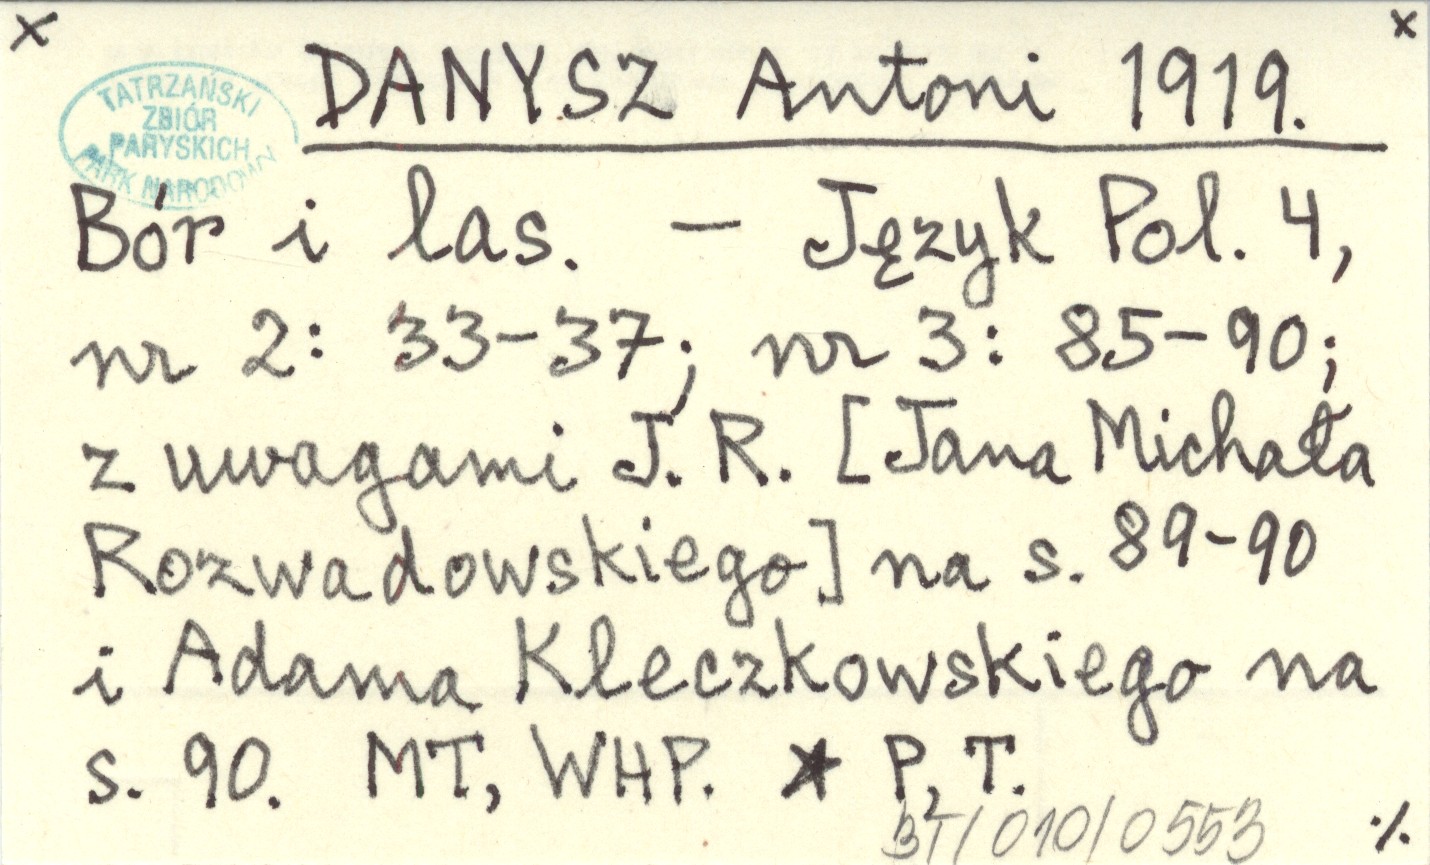 x x
TATRZAŃSKI
ZBIÓR
PARYSKICH
PARK NARODOWY
DANYSZ Antoni 1919.
Bór i las. – Język Pol. 4,
nr 2: 33–37; nr 3: 85–90;
z uwagami J. R. [Jana Michała
Rozwadowskiego] na s. 89–90
i Adama Kleczkowskiego na
s. 90. MT, WHP. * P, T.
BT/010/0553 ·/.